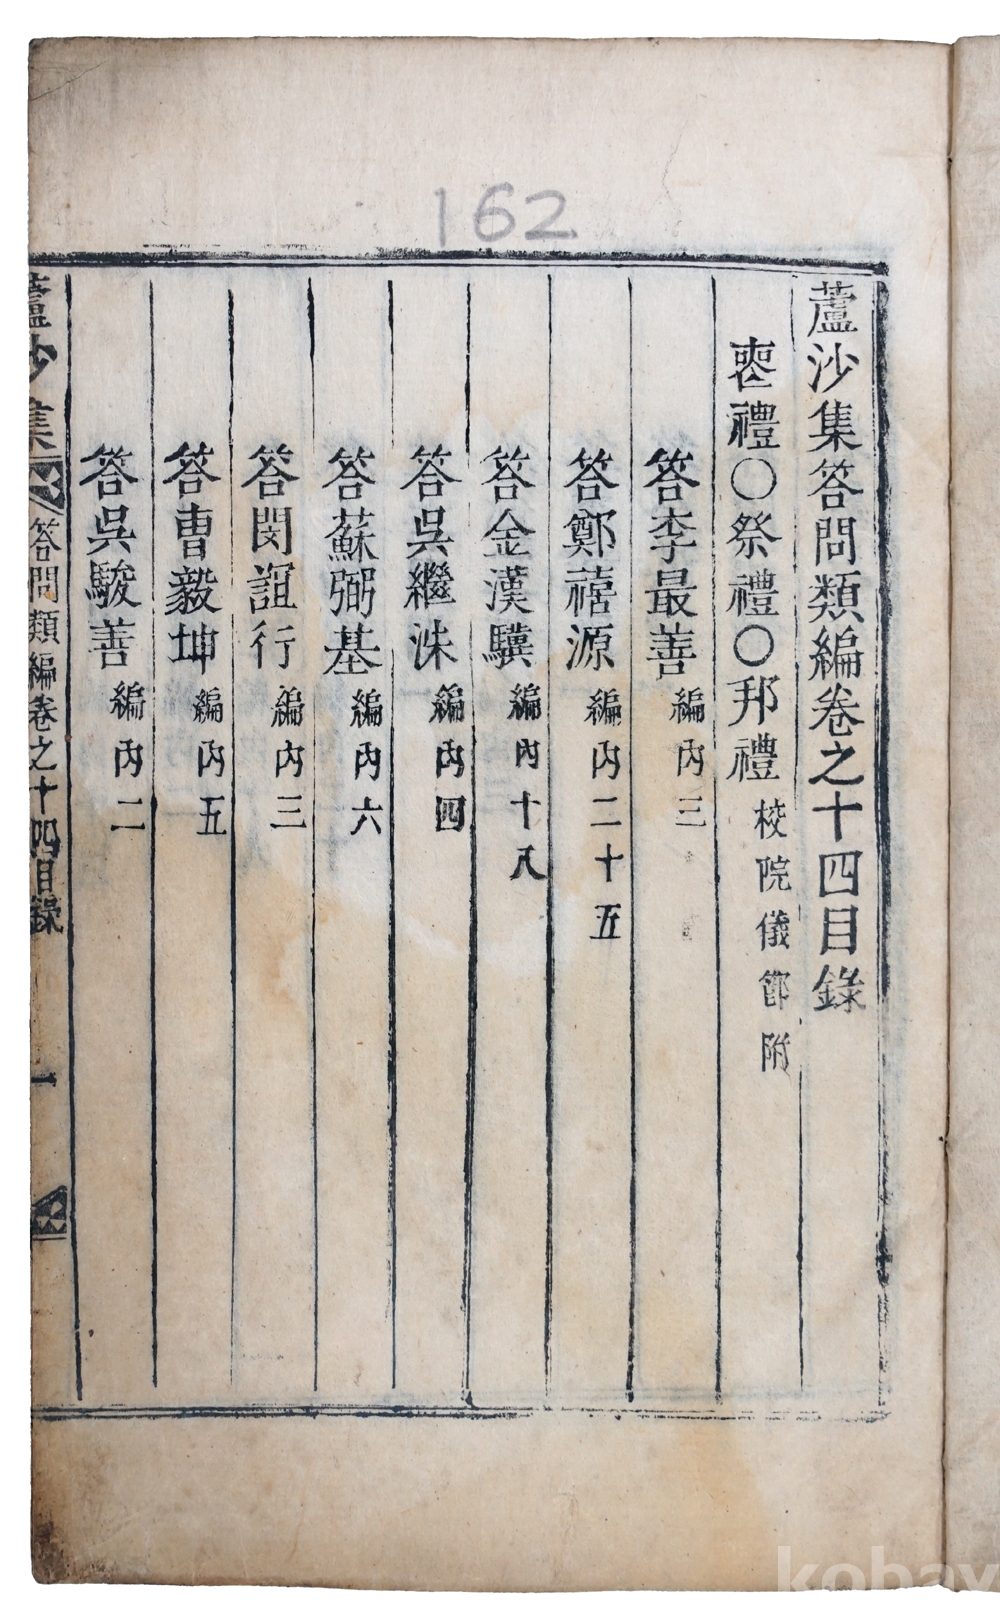 162
蘆沙集答問類編卷之十四目錄
喪禮○祭禮○邦禮校院儀節附
答李最善編內三
答鄭禧源編內二十五
答金漢驥編內十八
答吳繼洙編內四
答蘇弼基編內六
答閔誼行編內三
答曹毅坤編內五
答吳駿善編內二
蘆沙集 答問類編卷之十四目錄 一
kobay